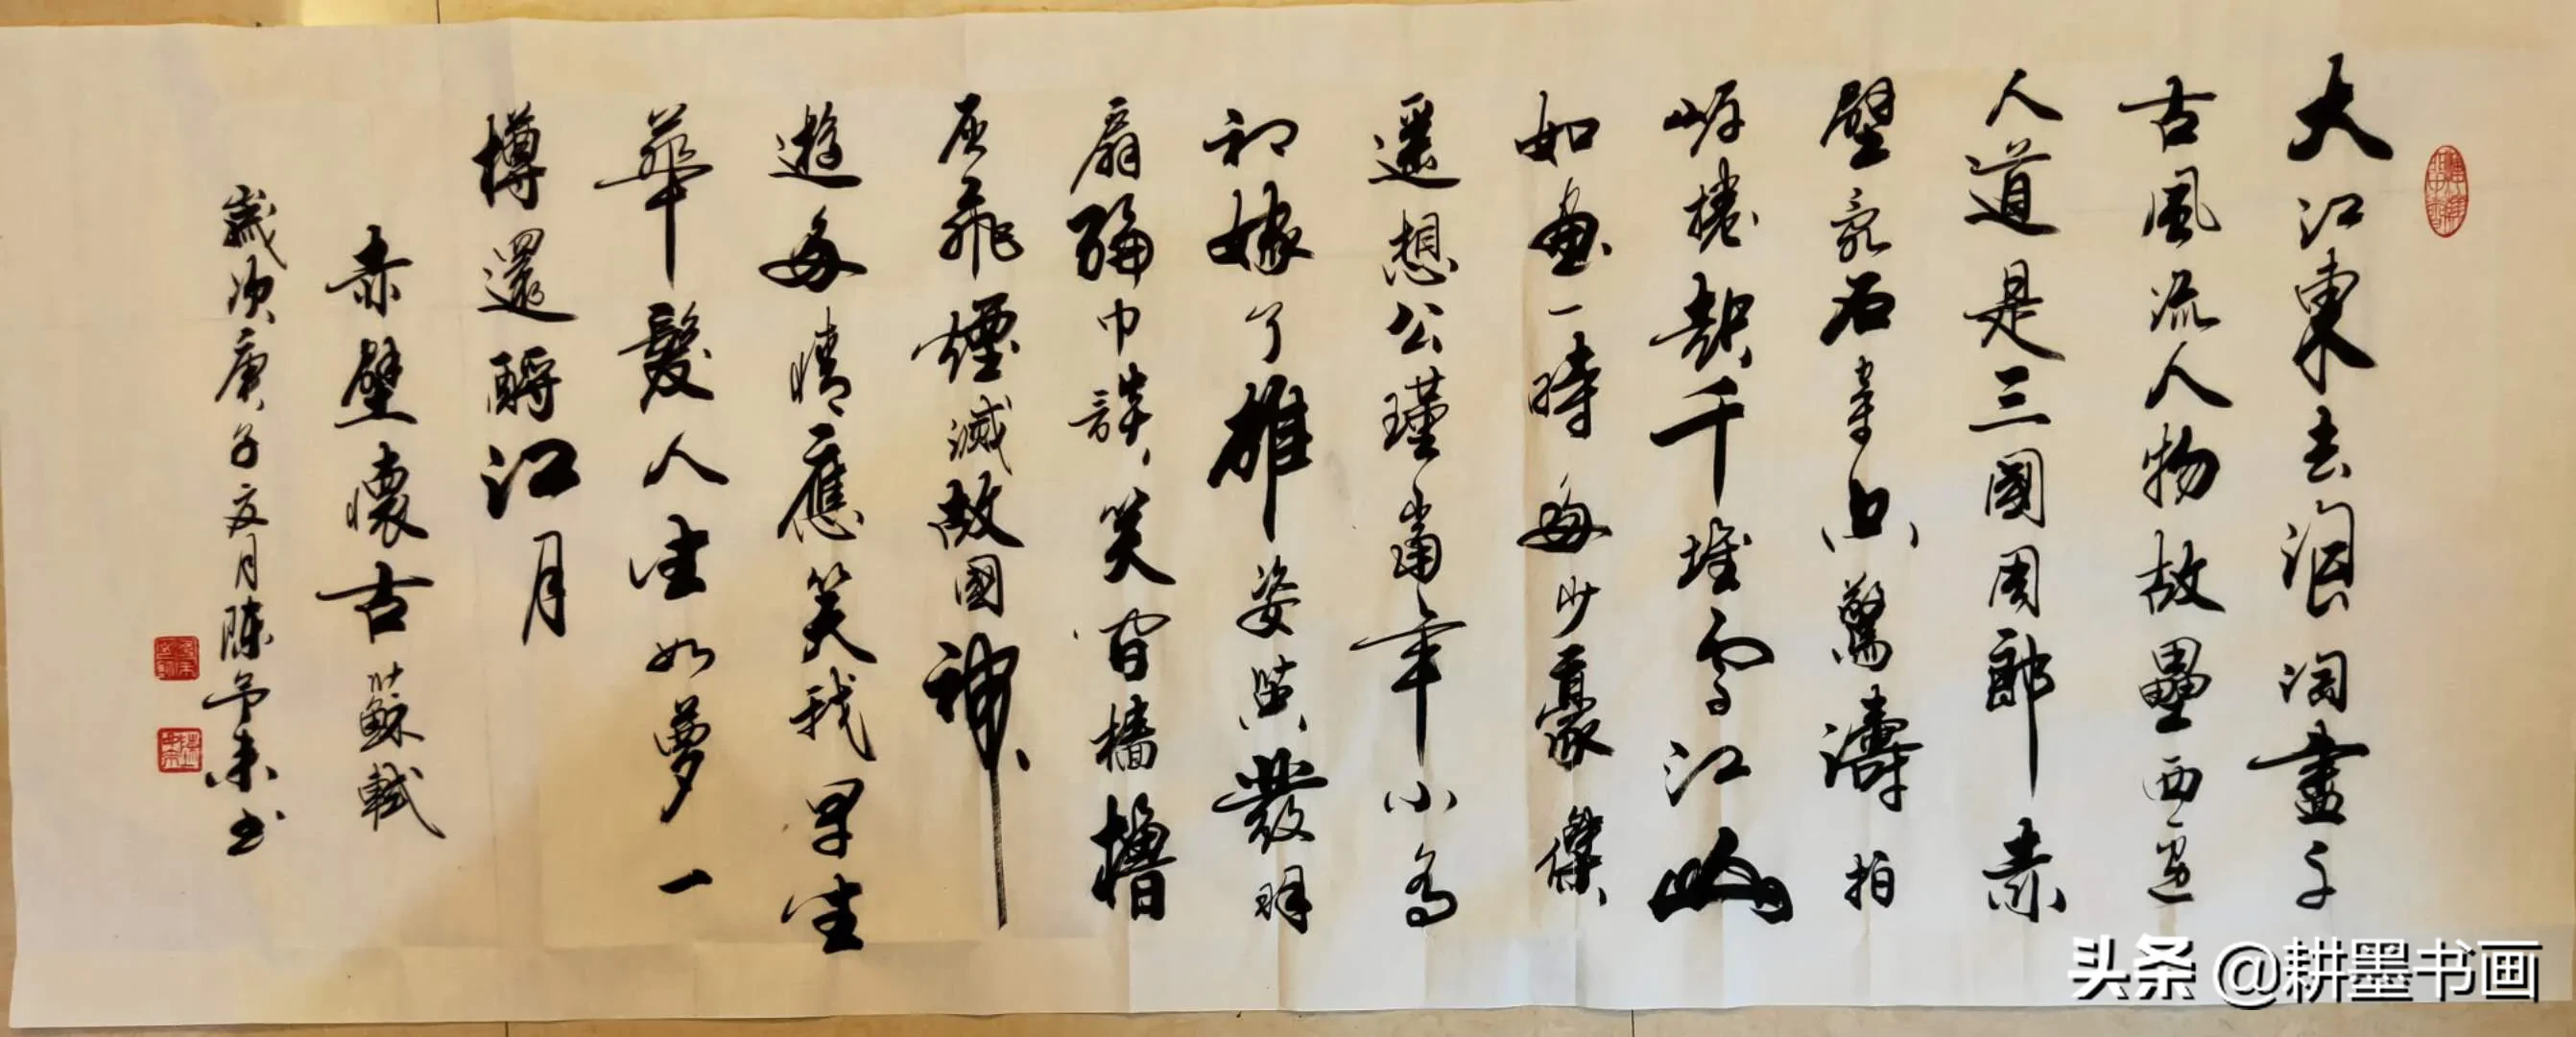 大江東去浪淘盡千
古風流人物故壘西邊
人道是三國周郎赤
壁亂石穿空驚濤拍
岸捲起千堆雪江山
如畫一時多少豪傑
遙想公瑾當年小喬
初嫁了雄姿英發羽
扇綸巾談笑間檣櫓
灰飛煙滅故國神
遊多情應笑我早生
華髮人生如夢一
樽還酹江月
赤壁懷古蘇軾
歲次庚子月陳书
头条 @耕墨书画